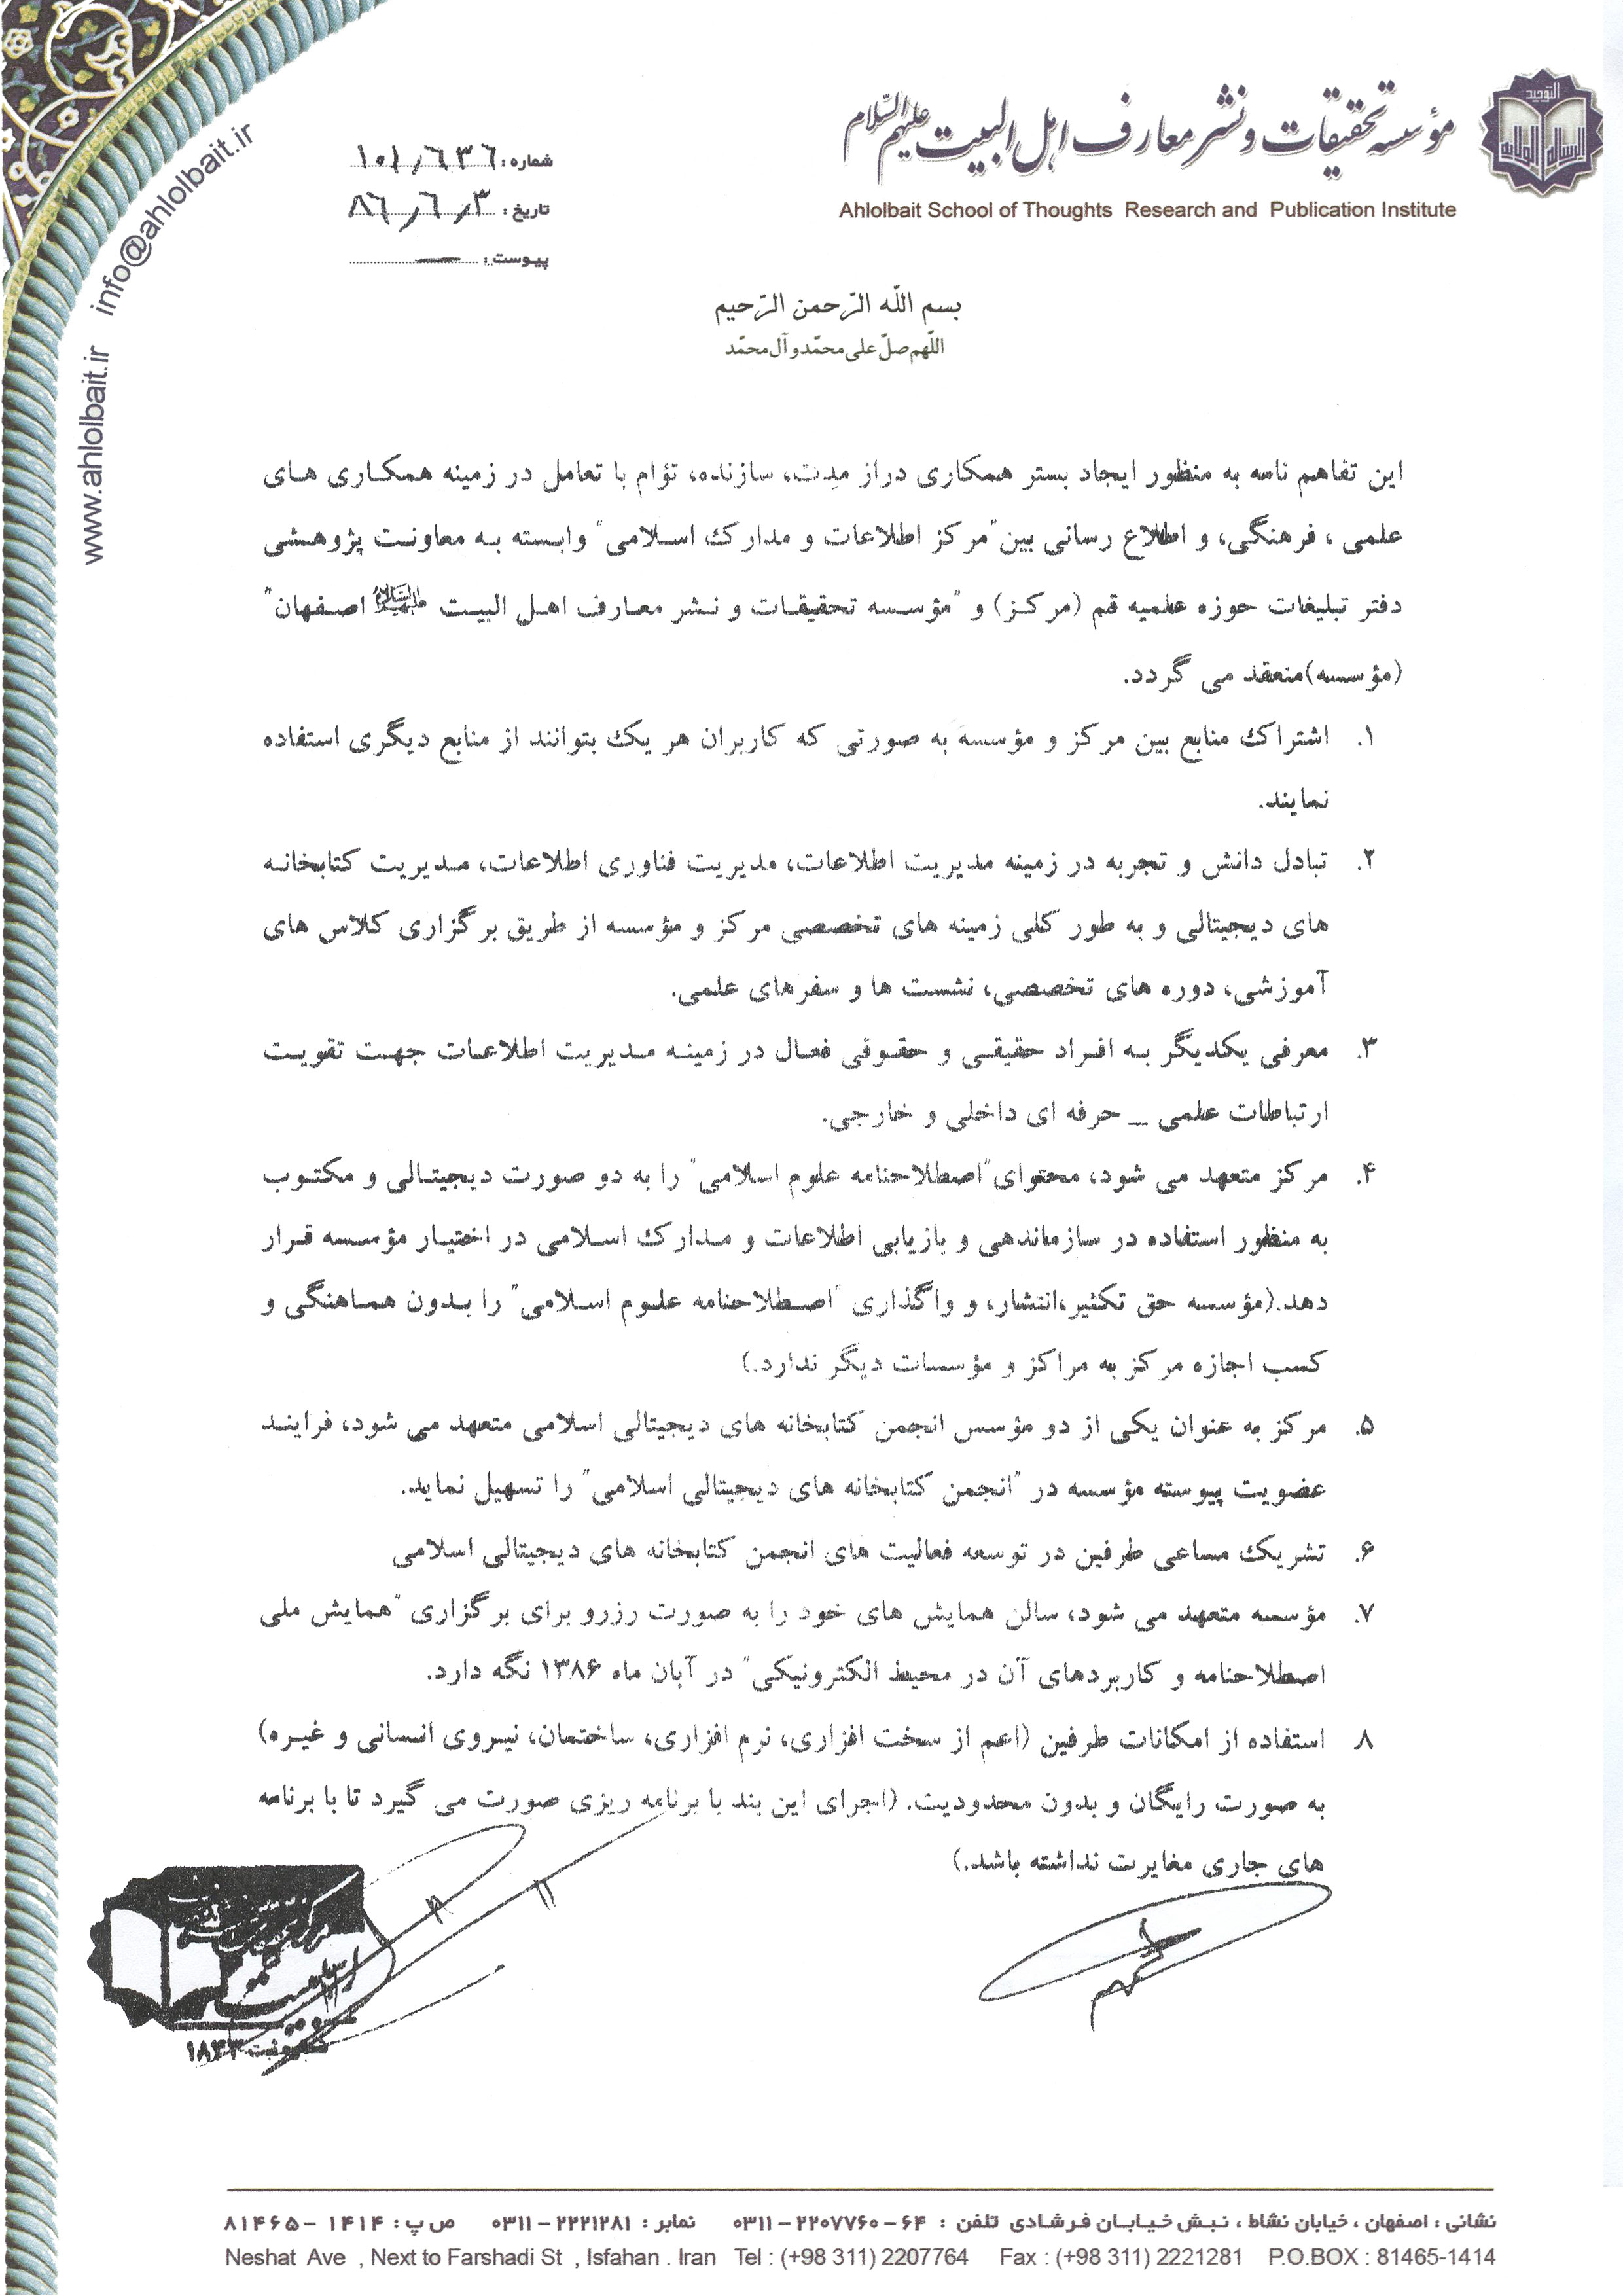 مؤسسه تحقیقات و نشر معارف اهل البیت علیهم السّلام
Ahlolbait School of Thoughts Research and Publication Institute
شماره : ۱۰۱٫۶۳۶
تاریخ : ۸۶٫۶٫۳
پیوست : —
info@ahlolbait.ir
www.ahlolbait.ir
بسم اللّه الرّحمن الرّحیم
اللّهم صلّ علی محمّد و آل محمّد
این تفاهم نامه به منظور ایجاد بستر همکاری دراز مدت، سازنده، توٴام با تعامل در زمینه همکاری های
علمی ، فرهنگی، و اطلاع رسانی بین"مرکز اطلاعات و مدارک اسلامی" وابسته به معاونت پژوهشی
دفتر تبلیغات حوزه علمیه قم (مرکز) و "مؤسسه تحقیقات و نشر معارف اهل البیت علیهم السلام اصفهان"
(مؤسسه)منعقد می گردد.
۱. اشتراک منابع بین مرکز و مؤسسه به صورتی که کاربران هر یک بتوانند از منابع دیگری استفاده
نمایند.
۲. تبادل دانش و تجربه در زمینه مدیریت اطلاعات، مدیریت فناوری اطلاعات، مدیریت کتابخانه
های دیجیتالی و به طور کلی زمینه های تخصصی مرکز و مؤسسه از طریق برگزاری کلاس های
آموزشی، دوره های تخصصی، نشست ها و سفرهای علمی.
۳. معرفی یکدیگر به افراد حقیقی و حقوقی فعال در زمینه مدیریت اطلاعات جهت تقویت
ارتباطات علمی _ حرفه ای داخلی و خارجی.
۴. مرکز متعهد می شود، محتوای"اصطلاحنامه علوم اسلامی" را به دو صورت دیجیتالی و مکتوب
به منظور استفاده در سازماندهی و بازیابی اطلاعات و مدارک اسلامی در اختیار مؤسسه قرار
دهد.(مؤسسه حق تکثیر،انتشار، و واگذاری "اصطلاحنامه علوم اسلامی" را بدون هماهنگی و
کسب اجازه مرکز به مراکز و مؤسسات دیگر ندارد.)
۵. مرکز به عنوان یکی از دو مؤسس انجمن کتابخانه های دیجیتالی اسلامی متعهد می شود، فرایند
عضویت پیوسته مؤسسه در "انجمن کتابخانه های دیجیتالی اسلامی" را تسهیل نماید.
۶. تشریک مساعی طرفین در توسعه فعالیت های انجمن کتابخانه های دیجیتالی اسلامی
۷. مؤسسه متعهد می شود، سالن همایش های خود را به صورت رزرو برای برگزاری "همایش ملی
اصطلاحنامه و کاربردهای آن در محیط الکترونیکی" در آبان ماه ۱۳۸۶ نگه دارد.
۸ استفاده از امکانات طرفین (اعم از سخت افزاری، نرم افزاری، ساختمان، نیروی انسانی و غیره)
به صورت رایگان و بدون محدودیت. (اجرای این بند با برنامه ریزی صورت می گیرد تا با برنامه
های جاری مغایرت نداشته باشد.)
نشانی : اصفهان ، خیابان نشاط ، نبش خیابان فرشادی تلفن : ۶۴ – ۲۲۰۷۷۶۰ – ۰۳۱۱ نمابر : ۲۲۲۱۲۸۱ – ۰۳۱۱ ص پ : ۱۴۱۴ – ۸۱۴۶۵
Neshat Ave , Next to Farshadi St , Isfahan . Iran Tel : (+98 311) 2207764 Fax : (+98 311) 2221281 P.O.BOX : 81465-1414